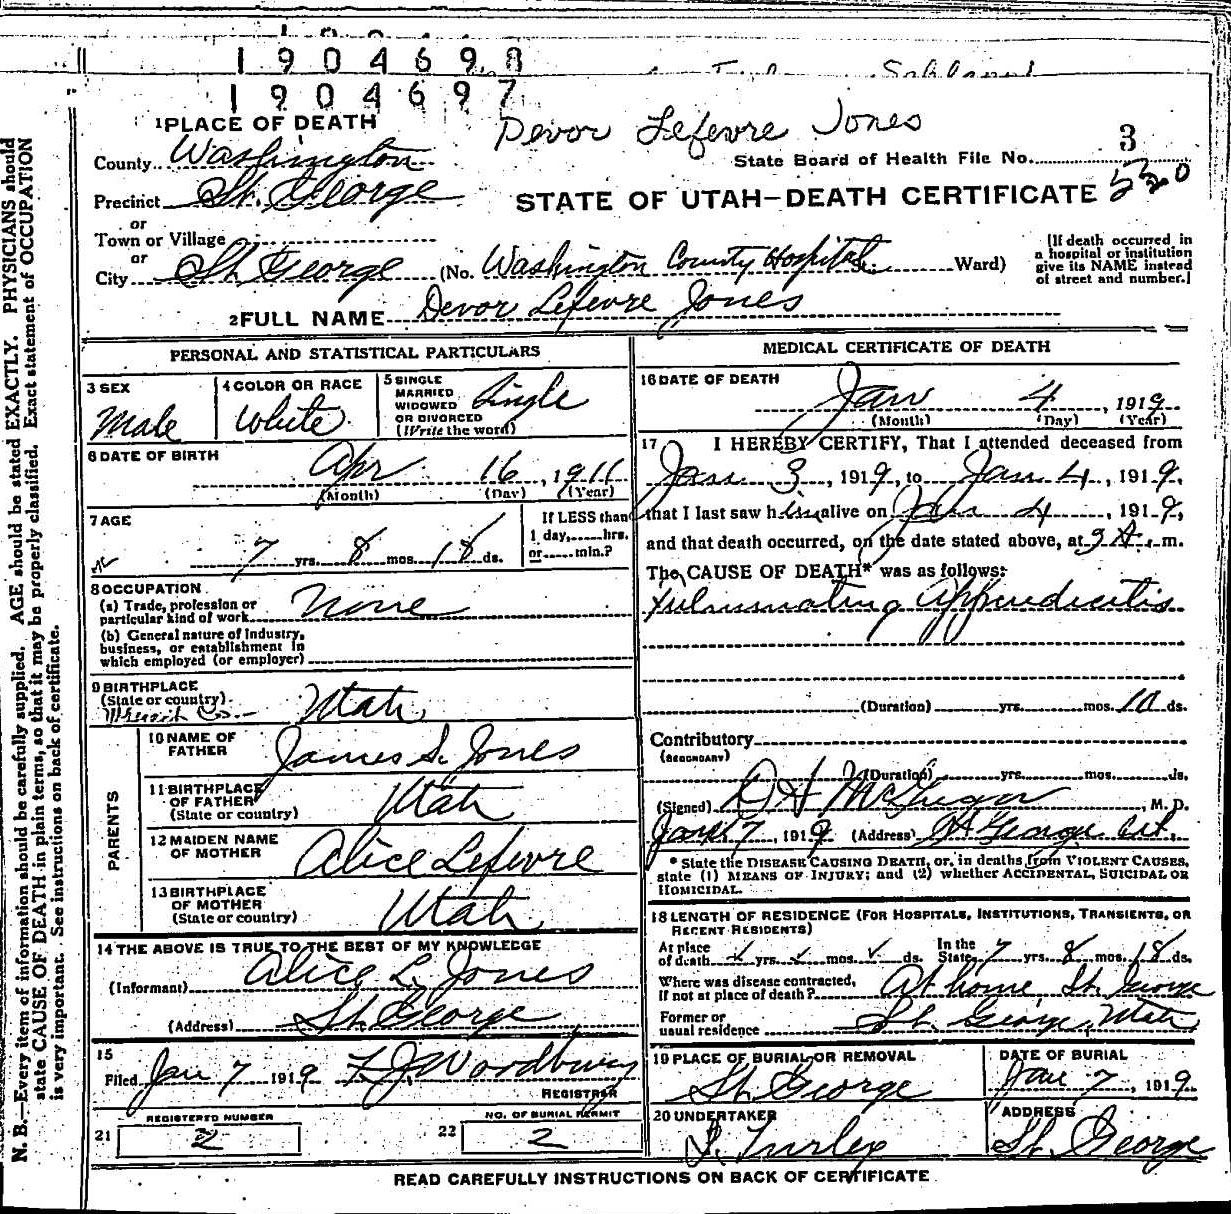 1904698
1904697
Devor Lefevre Jones
1 PLACE OF DEATH
County Washington
State Board of Health File No. 3
Precinct St. George
STATE OF UTAH—DEATH CERTIFICATE 520
or
Town or Village
or
City St. George (No. Washington County Hospital Ward)
[If death occurred in
a hospital or institution
give its NAME instead
of street and number.]
2 FULL NAME Devor Lefevre Jones
PERSONAL AND STATISTICAL PARTICULARS
3 SEX
Male
4 COLOR OR RACE
White
5 SINGLE
MARRIED
WIDOWED
OR DIVORCED
(Write the word)
Single
6 DATE OF BIRTH
Apr 16, 1911
(Month) (Day) (Year)
7 AGE
7 yrs. 8 mos. 18 ds.
If LESS than
1 day, hrs.
or min.?
8 OCCUPATION
(a) Trade, profession or
particular kind of work None
(b) General nature of industry,
business, or establishment in
which employed (or employer)
9 BIRTHPLACE
(State or country) Utah
PARENTS
10 NAME OF
FATHER James S. Jones
11 BIRTHPLACE
OF FATHER
(State or country) Utah
12 MAIDEN NAME
OF MOTHER Alice Lefevre
13 BIRTHPLACE
OF MOTHER
(State or country) Utah
14 THE ABOVE IS TRUE TO THE BEST OF MY KNOWLEDGE
(Informant) Alice L. Jones
(Address) St. George
15
Filed Jan 7 1919 F. J. Woodbury
REGISTRAR
REGISTERED NUMBER
21 2
NO. OF BURIAL PERMIT
22 2
MEDICAL CERTIFICATE OF DEATH
16 DATE OF DEATH
Jan 4, 1919
(Month) (Day) (Year)
17 I HEREBY CERTIFY, That I attended deceased from
Jan 3, 1919, to Jan 4, 1919,
that I last saw him alive on Jan 4, 1919,
and that death occurred, on the date stated above, at 3 A. m.
The CAUSE OF DEATH* was as follows:
Fulminating Appendicitis
(Duration) yrs. mos. 10 ds.
Contributory
(SECONDARY)
(Duration) yrs. mos. ds.
(Signed) D H McGregor, M. D.
Jan 7, 1919 (Address) St George Ut.
* State the DISEASE CAUSING DEATH, or, in deaths from VIOLENT CAUSES,
state (1) MEANS OF INJURY; and (2) whether ACCIDENTAL, SUICIDAL OR
HOMICIDAL.
18 LENGTH OF RESIDENCE (FOR HOSPITALS, INSTITUTIONS, TRANSIENTS, OR
RECENT RESIDENTS)
At place
of death yrs. mos. ds.
In the
State 7 yrs. 8 mos. 18 ds.
Where was disease contracted,
If not at place of death? At home, St. George
Former or
usual residence St. George, Utah
19 PLACE OF BURIAL OR REMOVAL
St. George
DATE OF BURIAL
Jan 7, 1919
20 UNDERTAKER
Turley
ADDRESS
St. George
READ CAREFULLY INSTRUCTIONS ON BACK OF CERTIFICATE
N. B.—Every item of information should be carefully supplied. AGE should be stated EXACTLY. PHYSICIANS should
state CAUSE OF DEATH in plain terms, so that it may be properly classified. Exact statement of OCCUPATION
is very important. See instructions on back of certificate.